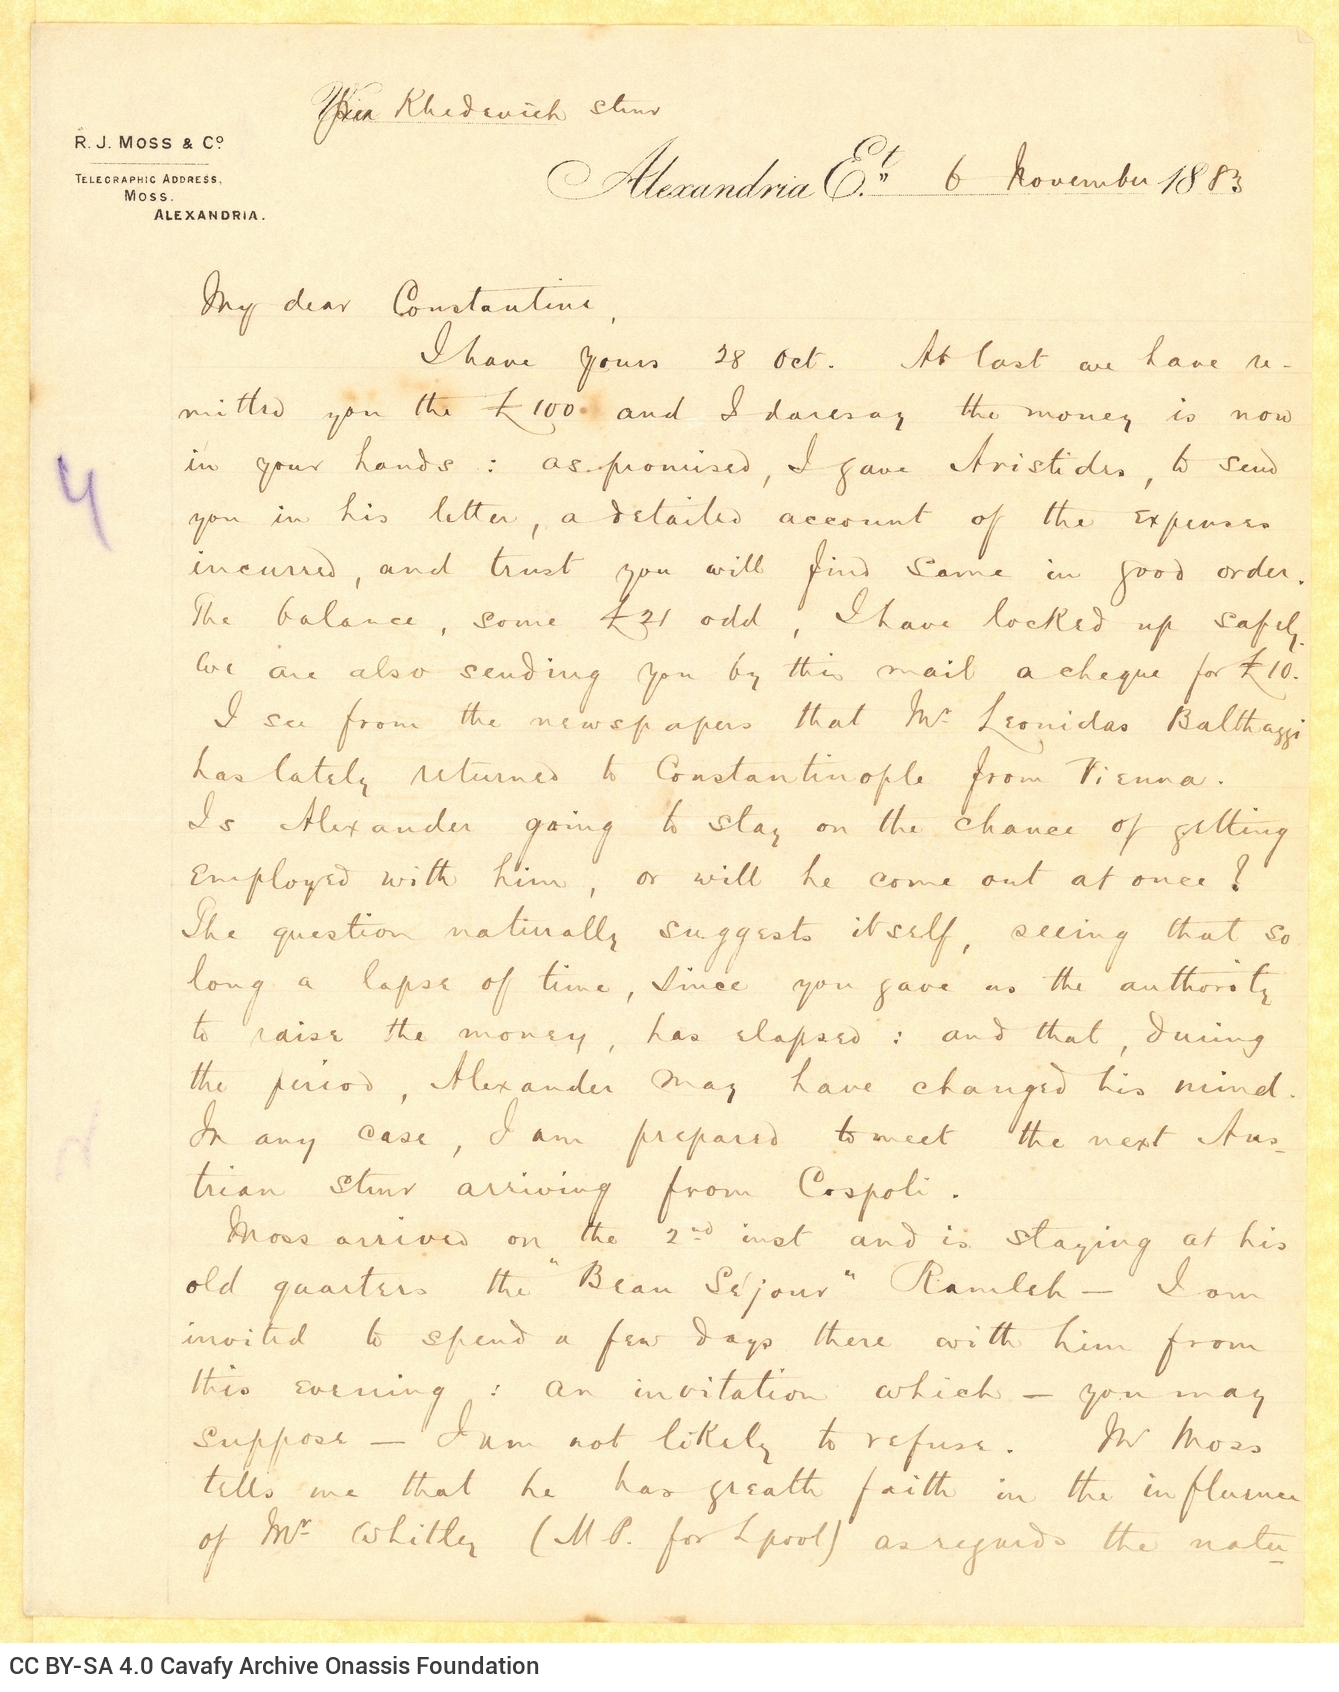 Khedevieh stmr
R. J. MOSS & Cº
TELEGRAPHIC ADDRESS,
MOSS.
ALEXANDRIA.
Alexandria E.t 6 November 1883
My dear Constantine,
I have yours 28 Oct. At last we have re-
mitted you the £100 and I daresay the money is now
in your hands : as promised, I gave Aristides, to send
you in his letter, a detailed account of the expenses
incurred, and trust you will find same in good order.
The balance, some £21 odd, I have locked up safely.
We are also sending you by this mail a cheque for £10.
I see from the newspapers that Mr Leonidas Balthaggi
has lately returned to Constantinople from Vienna.
Is Alexander going to stay on the chance of getting
employed with him, or will he come out at once?
The question naturally suggests itself, seeing that so
long a lapse of time, since you gave us the authority
to raise the money, has elapsed : and that, during
the period, Alexander may have changed his mind.
In any case, I am prepared to meet the next Aus-
trian stmr arriving from Cospoli.
Moss arrived on the 2nd inst and is staying at his
old quarters the "Beau Séjour" Ramleh — I am
invited to spend a few days there with him from
this evening : an invitation which — you may
suppose — I am not likely to refuse. Mr Moss
tells me that he has greath faith in the influence
of Mr Whitley (M P. for Lpool) as regards the natu-
4
2
CC BY-SA 4.0 Cavafy Archive Onassis Foundation